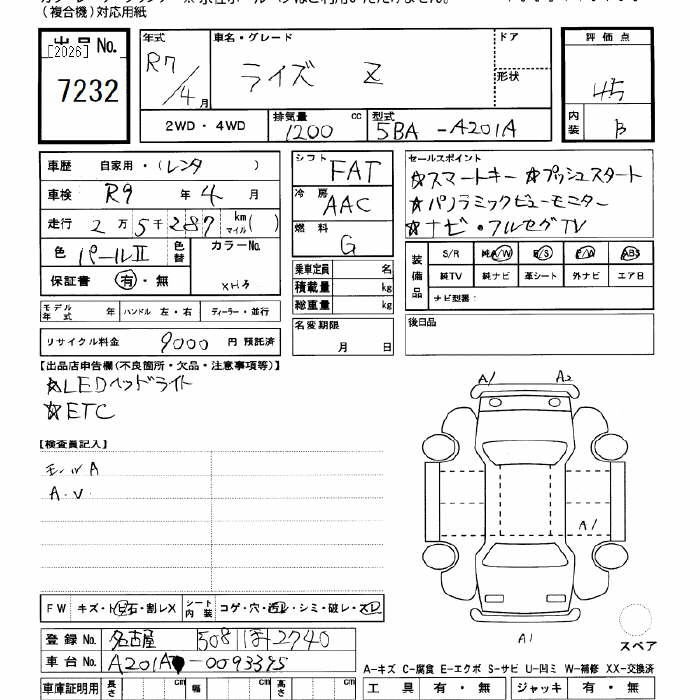 (複合機)対応用紙
出品No.
[2026]
7232
年式 R7/4月
車名・グレード ライズ Z
ドア
形状
2WD・4WD
排気量 1200 cc
型式 5BA -A201A
評価点 4.5
内装 B
車歴 自家用・(レンタ )
車検 R9年4月
走行 2万5千287km マイル( )
色 パールⅡ
色替
カラーNo.
保証書 有・無
モデル年式 年 ハンドル 左・右 ディーラー・並行
リサイクル料金 9000 円 預託済
シフト FAT
冷房 AAC
燃料 G
乗車定員 名
積載量 kg
総重量 kg
名変期限 月 日
セールスポイント
☆スマートキー ☆プッシュスタート
☆パノラミックビューモニター
☆ナビ・フルセグTV
装備品
S/R 純A/W P/S P/W ABS
純TV 純ナビ 革シート 外ナビ エアB
ナビ型番:
後日品
【出品店申告欄(不良箇所・欠品・注意事項等)】
☆LEDヘッドライト
☆ETC
【検査員記入】
モールA
A.V
A1 A2
A1
A1
スペア
FW キズ・ト石・割レX シート内装 コゲ・穴・汚レ・シミ・破レ・スレ
登録No. 名古屋 508 ほ 2740
車台No. A201A-0093395
A-キズ C-腐食 E-エクボ S-サビ U-凹ミ W-補修 XX-交換済
車庫証明用 長さ cm 幅 cm 高さ cm
工具 有・無 ジャッキ 有・無